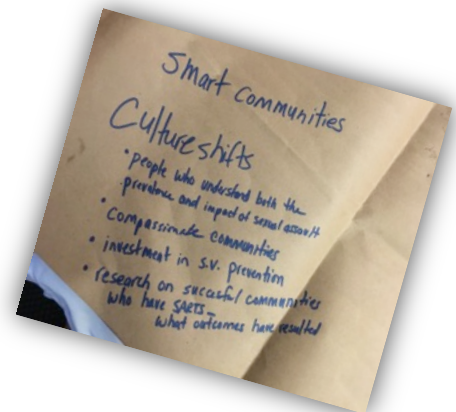 Smart Communities
Culture shifts
• people who understand both the
prevalence and impact of sexual assault
• compassionate communities
• investment in s.v. prevention
• research on succesful communities
who have SARTS -
what outcomes have resulted